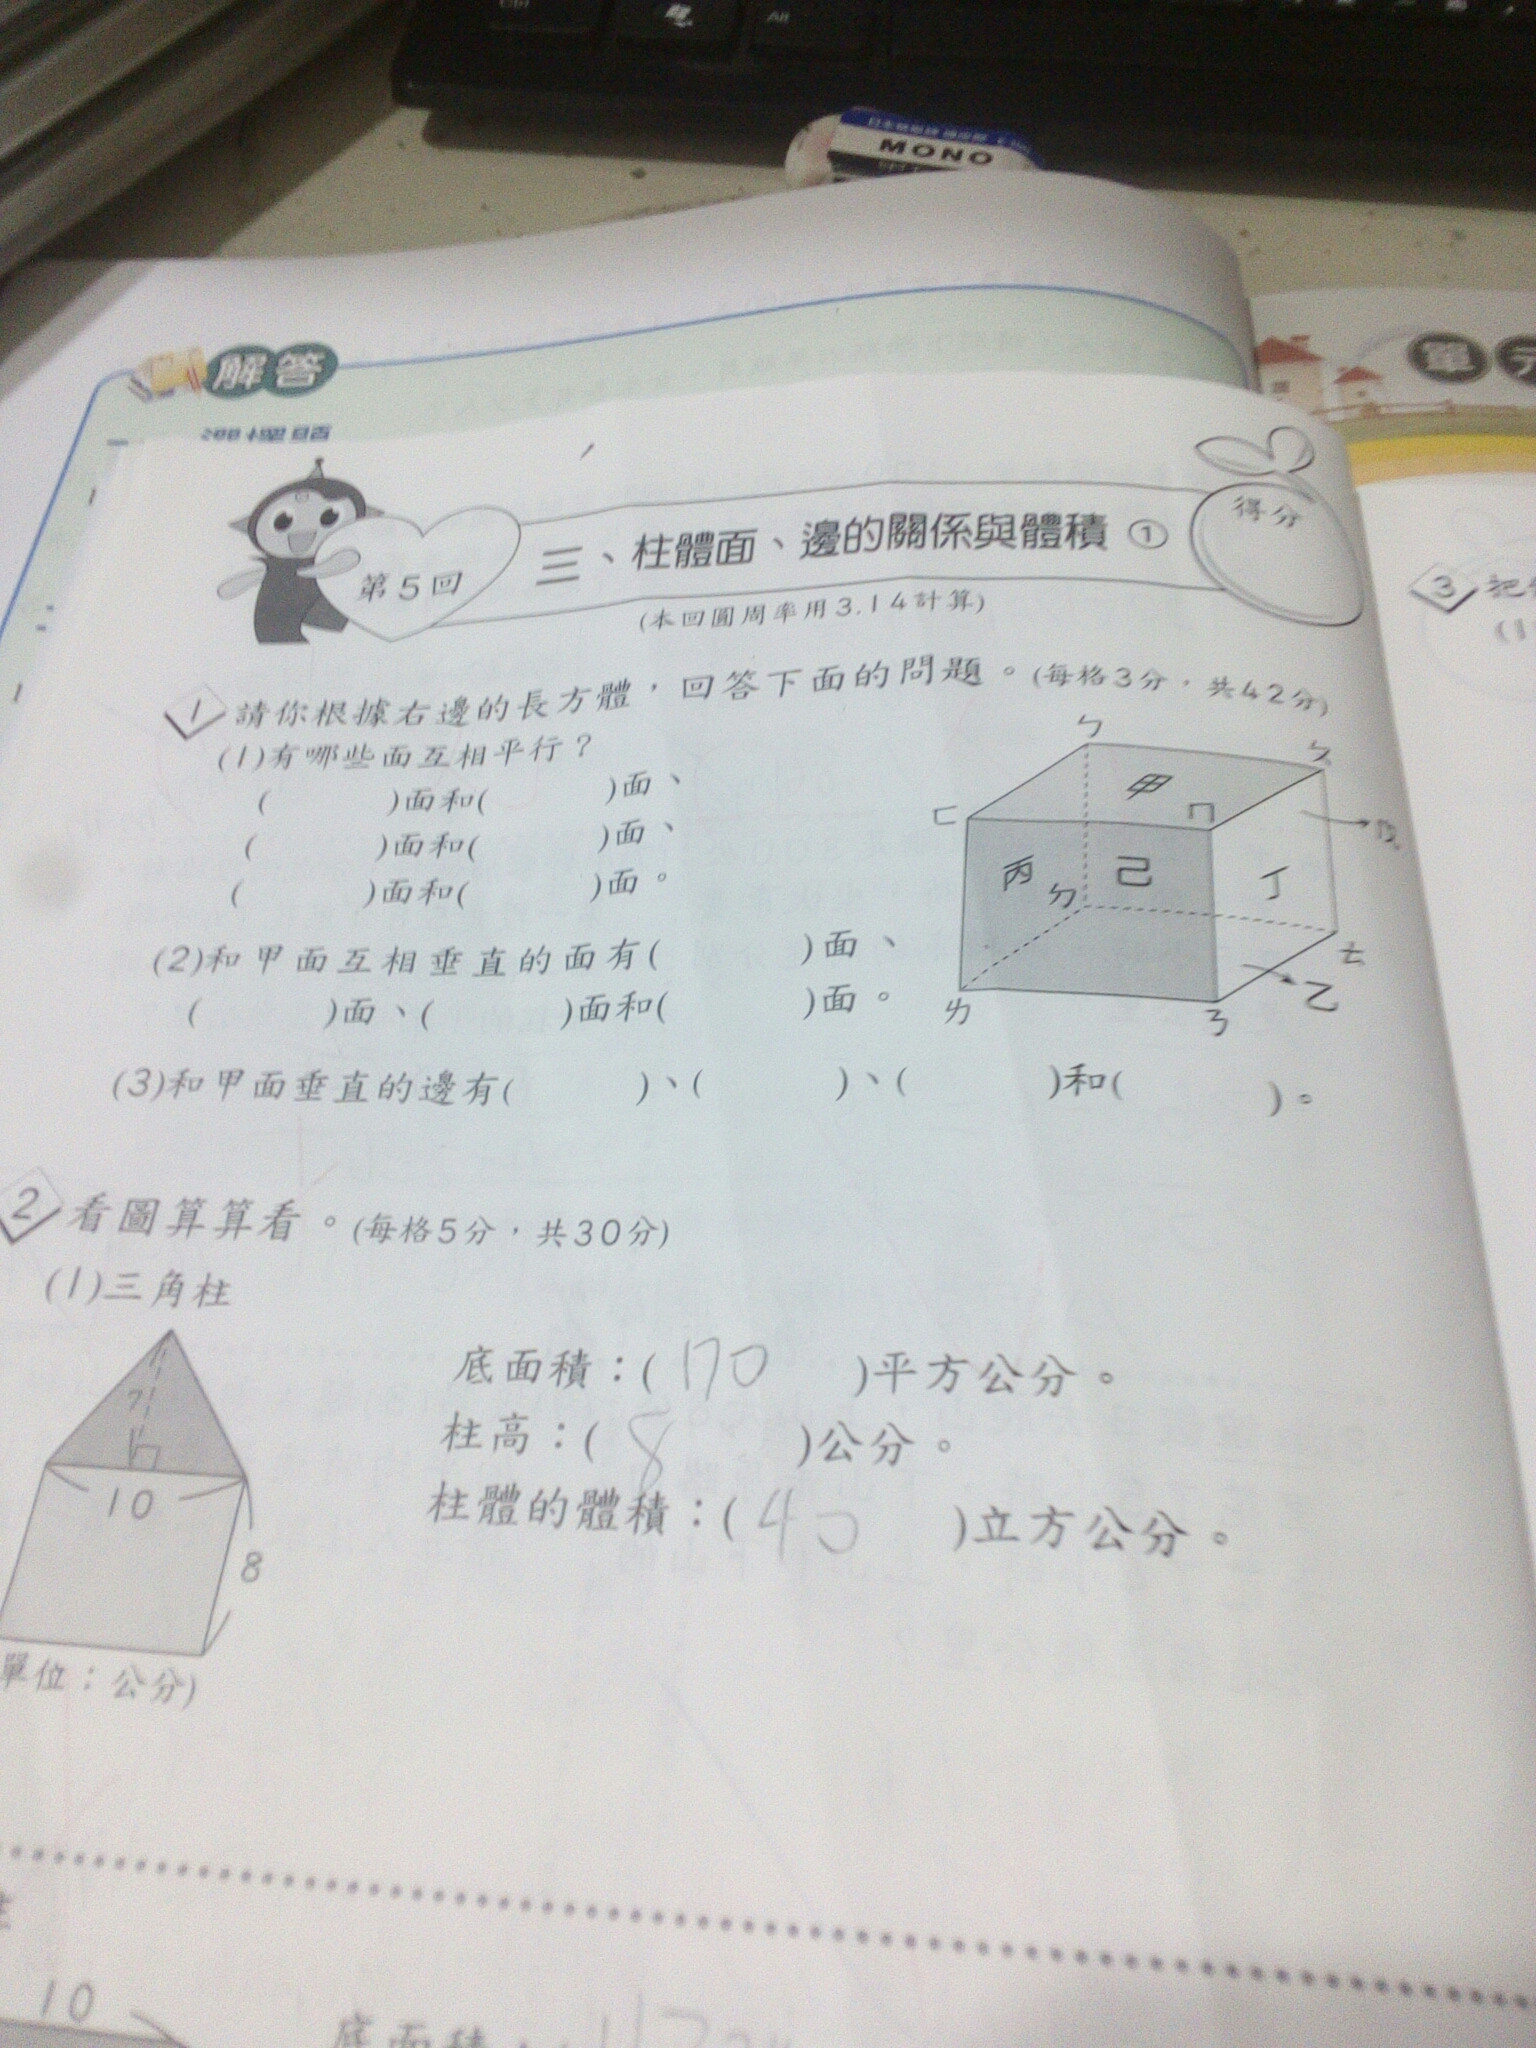 Ctrl
Alt
MONO
解答
單元
第5回
三、柱體面、邊的關係與體積 ①
得分
(本回圓周率用3.14計算)
3
1 請你根據右邊的長方體，回答下面的問題。(每格3分，共42分)
(1)有哪些面互相平行？
( )面和( )面、
( )面和( )面、
( )面和( )面。
ㄅ
ㄆ
甲
ㄈ
ㄇ
丙
己
丁
ㄉ
ㄊ
乙
ㄌ
ㄋ
(2)和甲面互相垂直的面有( )面、
( )面、( )面和( )面。
(3)和甲面垂直的邊有( )、( )、( )和( )。
2 看圖算算看。(每格5分，共30分)
(1)三角柱
7
10
8
單位：公分)
底面積：( 170 )平方公分。
柱高：( 8 )公分。
柱體的體積：( 40 )立方公分。
10
底面積：(